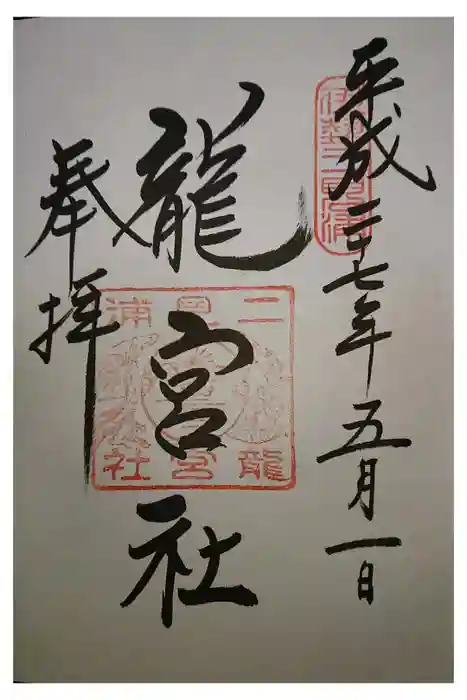 平成二十七年五月一日
伊勢二見浦
龍宮社
二見浦
龍宮社
奉拝